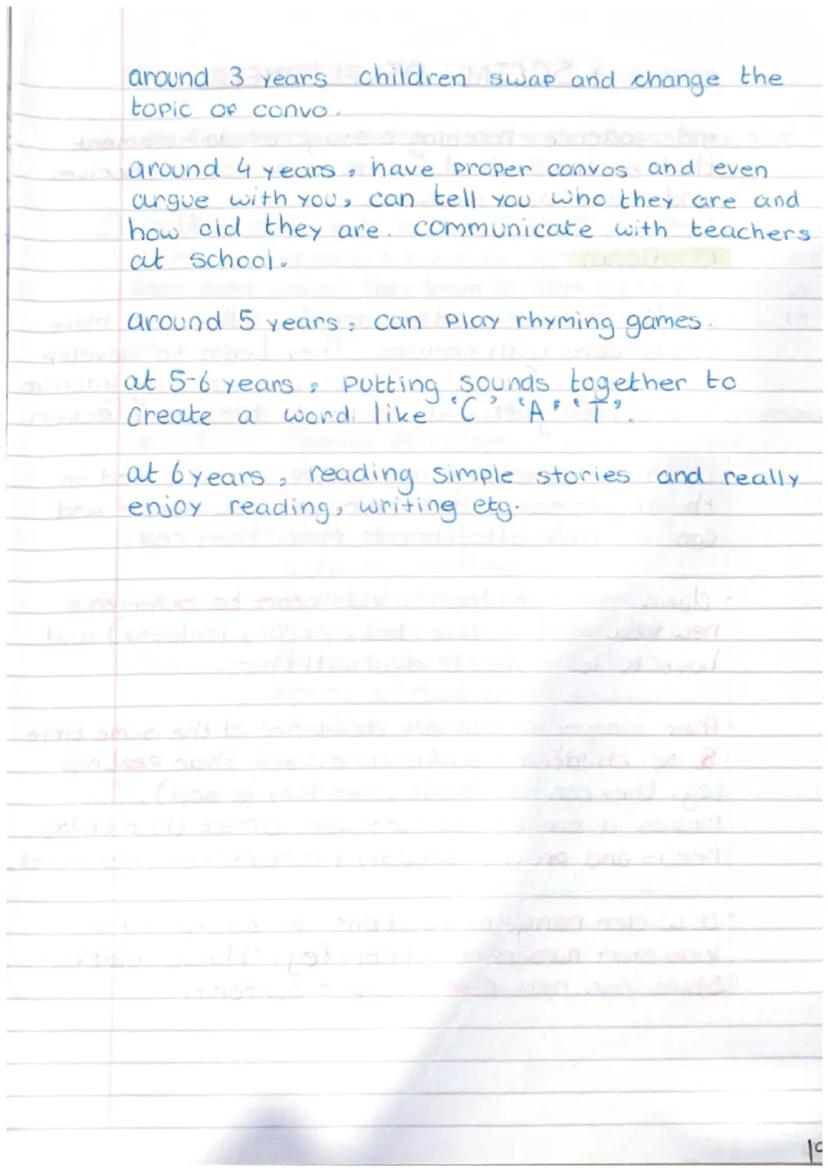 around 3 years children swap and change the
topic of convo.
around 4 years, have proper convos and even
argue with you, can tell you who they are and
how old they are. communicate with teachers
at school.
around 5 years, can play rhyming games.
at 5-6 years, putting sounds together to
create a word like 'C' 'A' 'T'.
at 6 years, reading simple stories and really
enjoy reading, writing etg.